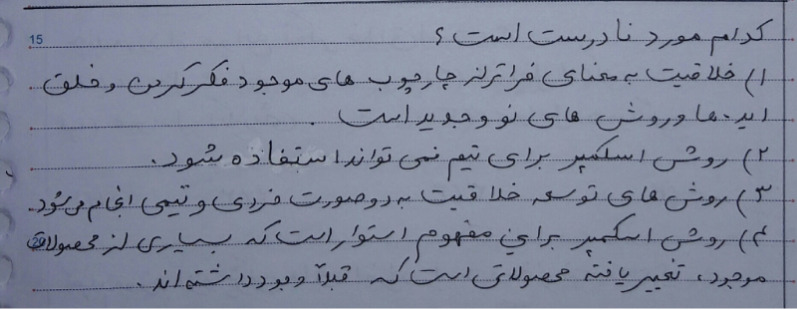 15
کدام مورد نادرست است؟
۱) خلاقیت به معنای فراتر از چارچوب های موجود فکر کردن و خلق
ایده ها و روش های نو و جدید است.
۲) روش اسکمپر برای تیم نمی تواند استفاده شود.
۳) روش های توسعه خلاقیت به دو صورت فردی و تیمی انجام می شود
۴) روش اسکمپر بر این مفهوم استوار است که بسیاری از محصولات
موجود، تغییر یافته محصولاتی است که قبلاً وجود داشته اند.